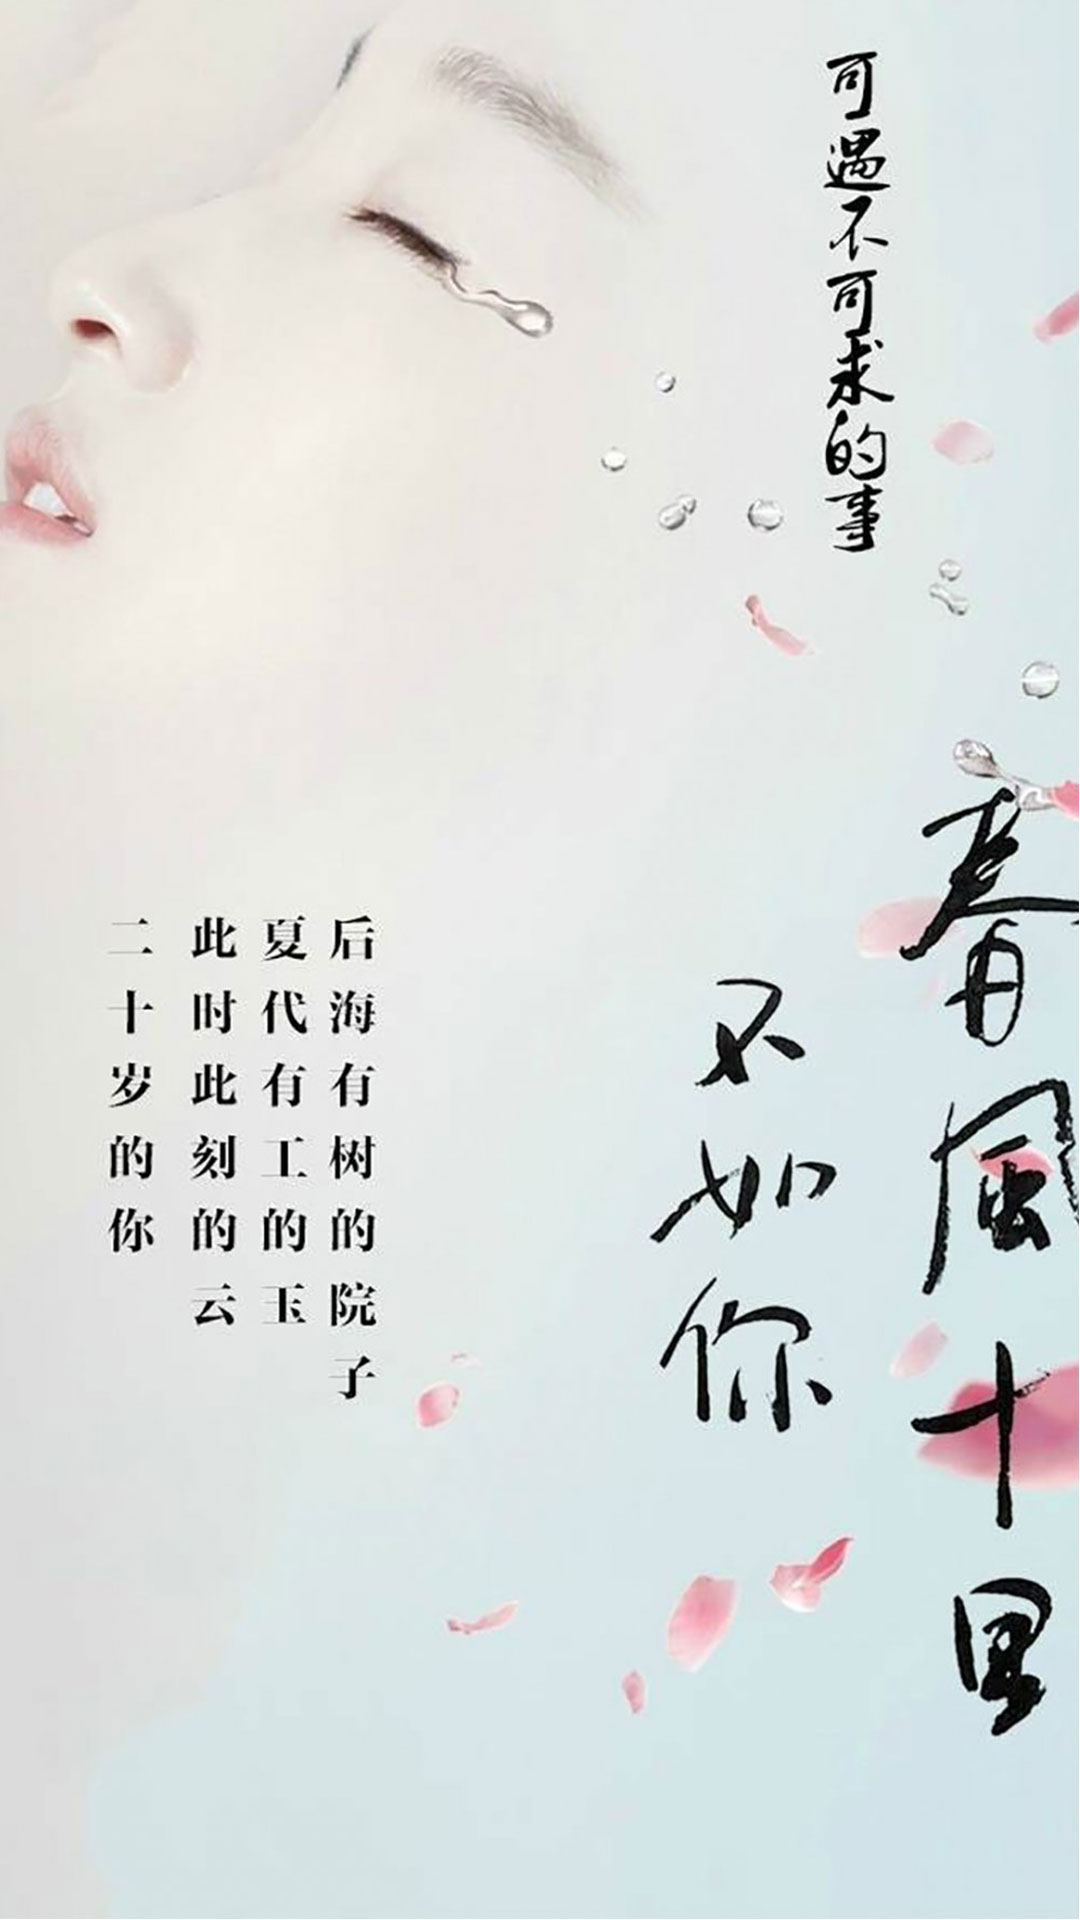 可遇不可求的事
春風十里
不如你
后海有树的院子
夏代有工的玉
此时此刻的云
二十岁的你